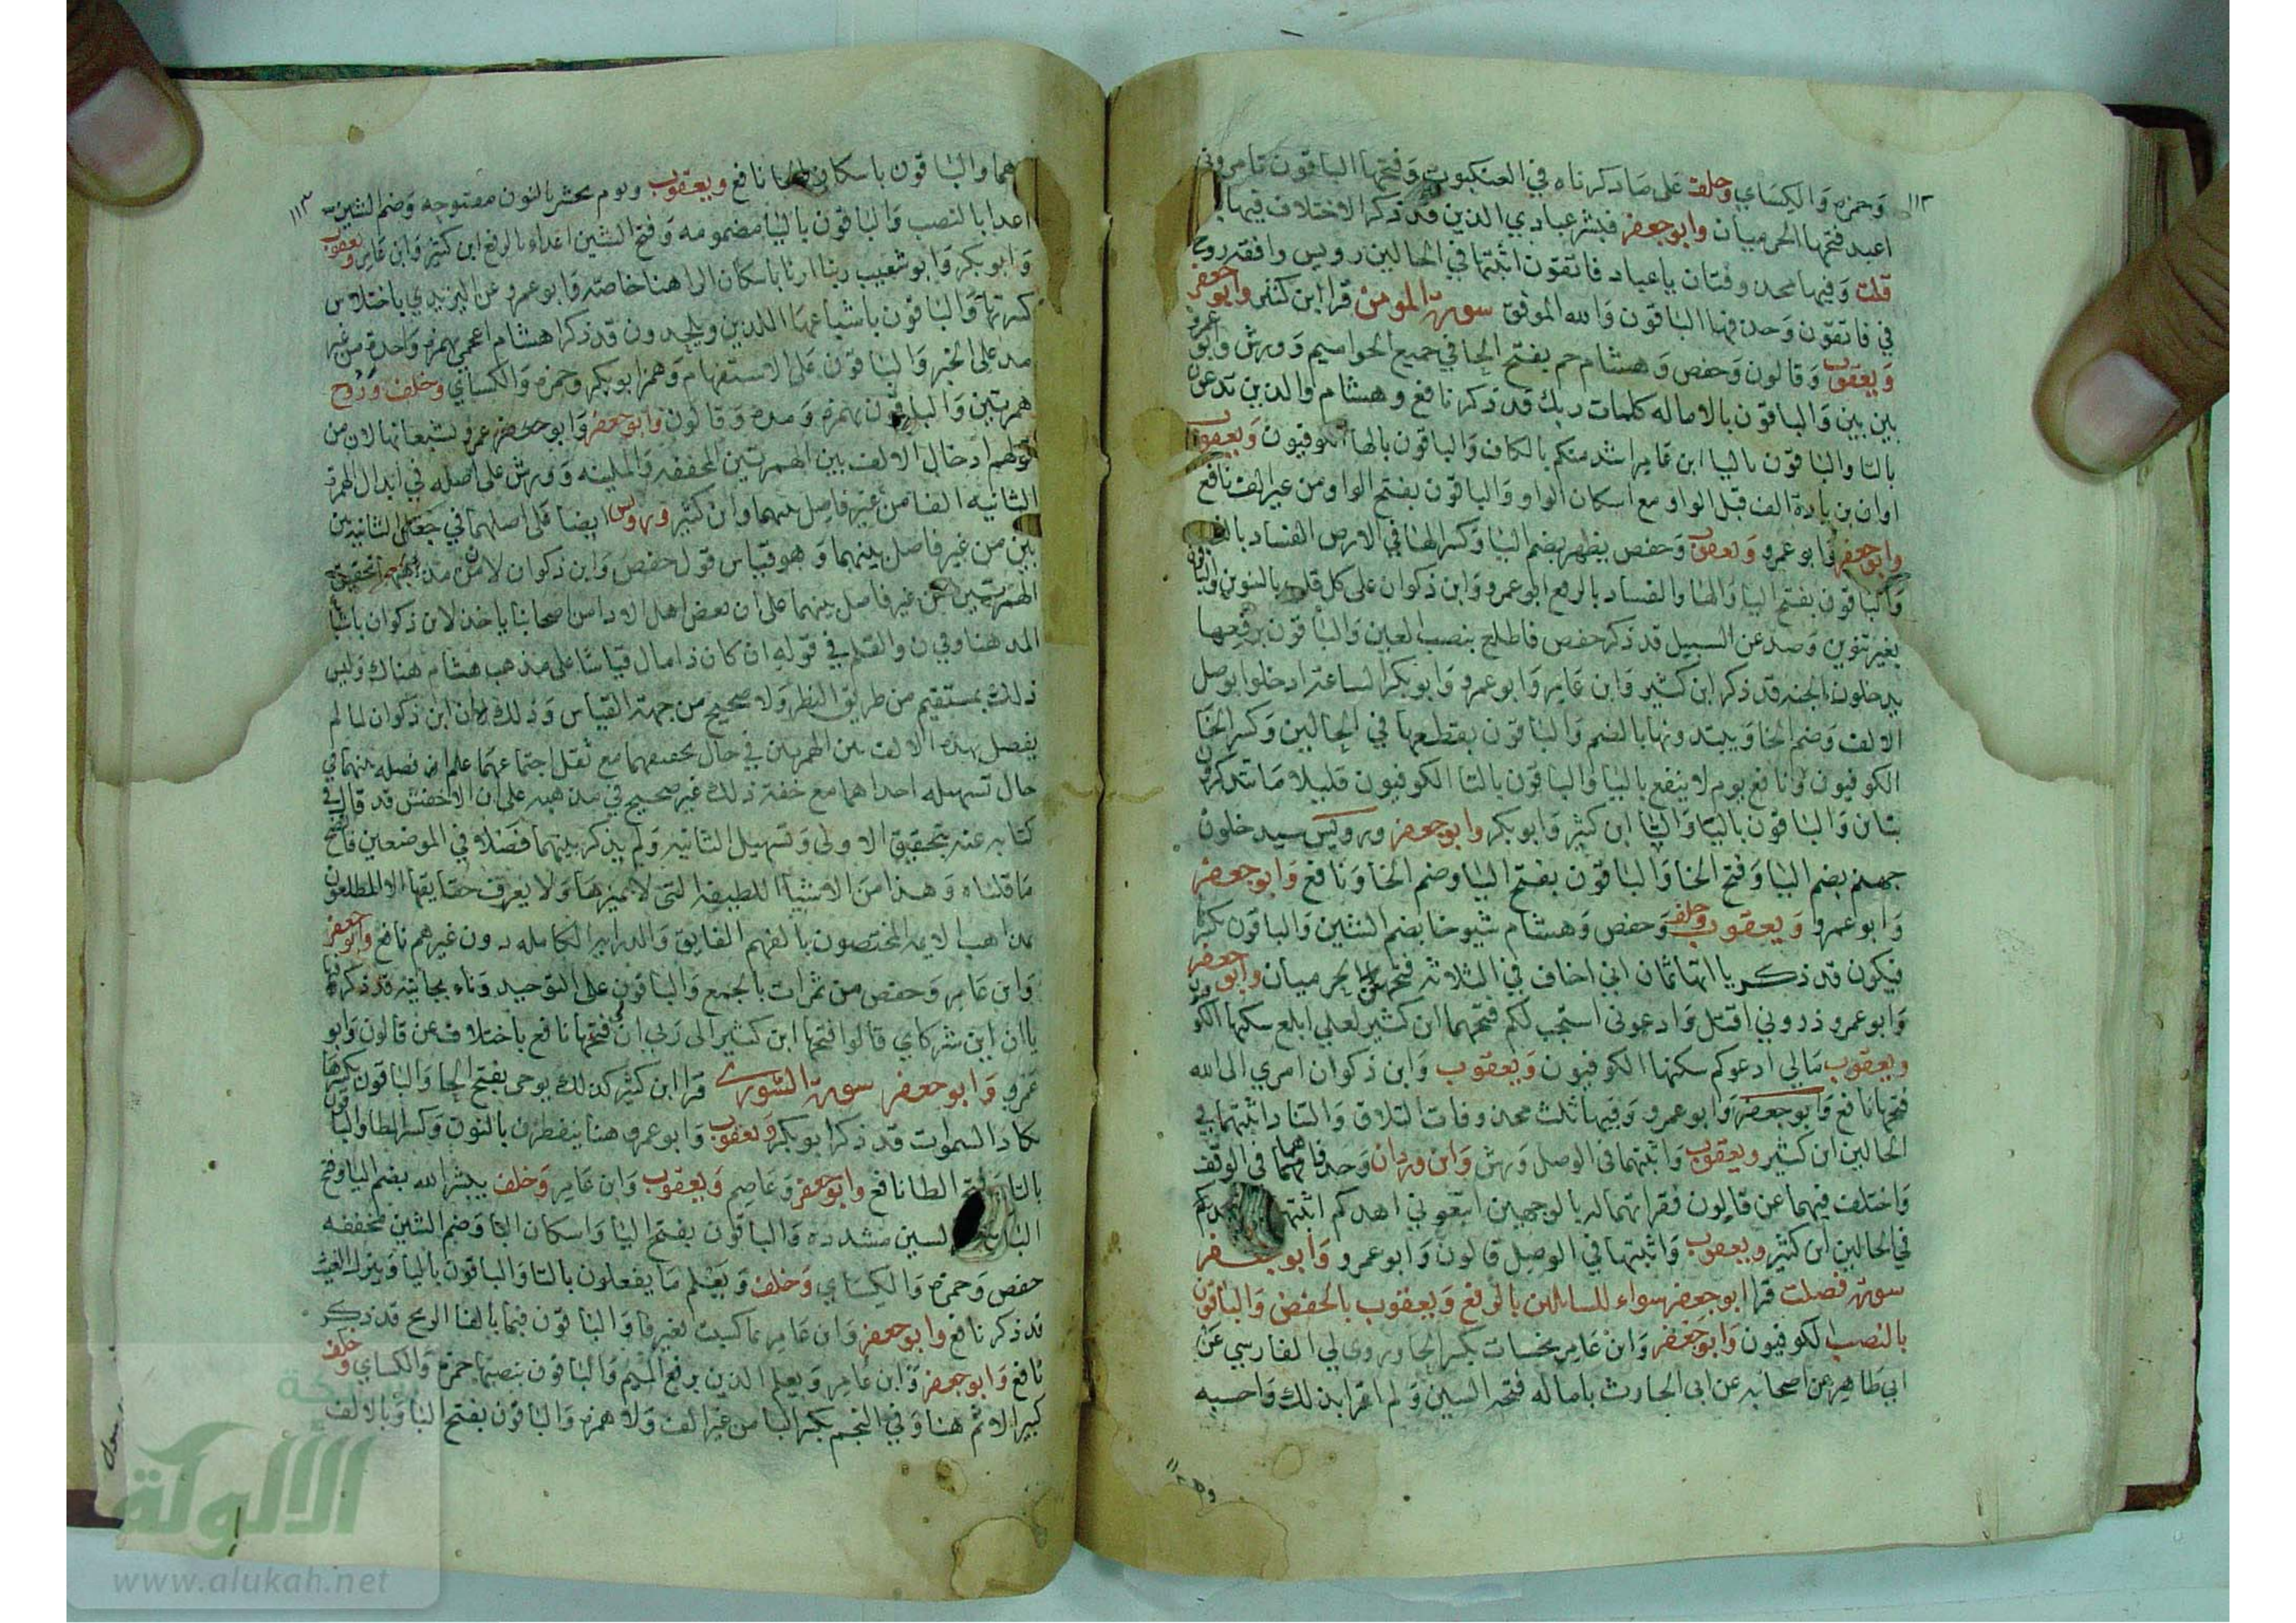 ١١٢
وحمزه والكساي وخلف على ما ذكرناه في العنكبوت وفتحها الباقون تامروني
اعبد فتحها الحرميان وابو جعفر فبشر عبادي الذين قد ذكر الاختلاف فيها
قلت وفيها محذوفتان يا عباد فاتقون اثبتها في الحالين رويس وافقه روح
في فاتقون وحذفها الباقون والله الموفق سورة المومن قرا ابن كثير وابو جعفر
ويعقوب وقالون وحفص وهشام حم بفتح الحا في جميع الحواميم وورش وابو عمرو
بين بين والباقون بالاماله كلمات ربك قد ذكر نافع وهشام والذين تدعون
بالتا والباقون باليا ابن عامر اشد منكم بالكاف والباقون بالها الكوفيون ويعقوب
او ان بزيادة الف قبل الواو مع اسكان الواو والباقون بفتح الواو من غير الف نافع
وابو جعفر وابو عمرو ويعقوب وحفص يظهر بضم اليا وكسر الها في الارض الفساد بالنصب
والباقون بفتح اليا والها والفساد بالرفع ابو عمرو وابن ذكوان على كل قلب بالتنوين والباقون
بغير تنوين وصد عن السبيل قد ذكر حفص فاطلع بنصب العين والباقون برفعها
يدخلون الجنه قد ذكر ابن كثير وابن عامر وابو عمرو وابو بكر الساعة ادخلوا بوصل
الالف وضم الخا ويبتدونها بالضم والباقون بقطعها في الحالين وكسر الخا
الكوفيون ونافع يوم لا ينفع باليا والباقون بالتا الكوفيون قليلا ما تتذكرون
بتاين والباقون باليا والتا ابن كثير وابو بكر وابو جعفر ورويس سيدخلون
جهنم بضم اليا وفتح الخا والباقون بفتح اليا وضم الخا ونافع وابو جعفر
وابو عمرو ويعقوب وخلف وحفص وهشام شيوخا بضم الشين والباقون بكسرها
فيكون قد ذكر ياآتها ثمان اني اخاف في الثلاثة فتحهن الحرميان وابو جعفر
وابو عمرو ذروني اقتل وادعوني استجب لكم فتحهما ابن كثير لعلي ابلغ سكنها الكوفيون
ويعقوب مالي ادعوكم سكنها الكوفيون ويعقوب وابن ذكوان امري الى الله
فتحها نافع وابو جعفر وابو عمرو وفيها ثلث محذوفات التلاق والتناد اثبتهما في
الحالين ابن كثير ويعقوب واثبتهما في الوصل ورش وابن وردان وحذفاهما في الوقف
واختلف فيهما عن قالون فقراتهما له بالوجهين اتبعوني اهدكم اثبتها
في الحالين ابن كثير ويعقوب واثبتها في الوصل قالون وابو عمرو وابو جعفر
سورة فصلت قرا ابو جعفر سواء للسائلين بالرفع ويعقوب بالخفض والباقون
بالنصب الكوفيون وابو جعفر وابن عامر نحسات بكسر الحا وروى لي الفارسي عن
ابي طاهر عن اصحابه عن ابي الحارث باماله فتحة السين ولم اقرا بذلك واحسبه
١١٣
وهما والباقون باسكان الحا نافع ويعقوب ويوم نحشر بالنون مفتوحه وضم الشين
اعدا بالنصب والباقون باليا مضمومه وفتح الشين اعداء بالرفع ابن كثير وابن عامر ويعقوب
وابو بكر وابو شعيب ربنا ارنا باسكان الرا هنا خاصة وابو عمرو عن اليزيدي باختلاس
كسرتها والباقون باشباعها اللذين ويلحدون قد ذكرا هشام اعجمي بهمزة واحدة من غير
مد على الخبر والباقون على الاستفهام وهمز ابو بكر وحمزه والكساي وخلف وروح
همزتين والباقون بهمزه ومده وقالون وابو جعفر وابو عمرو يشبعانها لان من
قولهم ادخال الالف بين الهمزتين المحققه والملينه وورش على اصله في ابدال الهمزة
الثانيه الفا من غير فاصل بينهما وابن كثير ورويس ايضا على اصلهما في جعل الثانيه بين
بين من غير فاصل بينهما وهو قياس قول حفص وابن ذكوان لان من مذهبهما تحقيق
الهمزتين من غير فاصل بينهما على ان بعض اهل الاداء من اصحابنا ياخذ لابن ذكوان باشباع
المد هنا وفي ن والقلم في قوله ان كان ذا مال قياسا على مذهب هشام هناك وليس
ذلك بمستقيم من طريق النظر ولا صحيح من جهة القياس وذلك ان ابن ذكوان لما لم
يفصل بهذه الالف بين الهمزتين في حال تحقيقهما مع ثقل اجتماعهما علم ان فصله بينهما في
حال تسهيله احداهما مع خفة ذلك غير صحيح في مذهبه على ان الاخفش قد قال في
كتابه عنه بتحقيق الاولى وتسهيل الثانيه ولم يذكر بينهما فصلا في الموضعين فاتضح
ما قلناه وهذا من الاشيا اللطيفة التي لا يميزها ولا يعرف حقايقها الا المطلعون
بمذاهب الايمه المختصون بالفهم الفايق والدرايه الكامله دون غيرهم نافع وابو جعفر
وابن عامر وحفص من ثمرات بالجمع والباقون على التوحيد وناء بجانبه قد ذكر فيها
ياان اين شركاي قالوا فتحها ابن كثير الى ربي ان فتحها نافع باختلاف عن قالون وابو
عمرو وابو جعفر سورة الشورى قرا ابن كثير كذلك يوحى بفتح الحا والباقون بكسرها
تكاد السموات قد ذكر ابو بكر ويعقوب وابو عمرو هنا ينفطرن بالنون وكسر الطا والباقون
بالتا وفتح الطا نافع وابو جعفر وعاصم ويعقوب وابن عامر وخلف يبشر الله بضم اليا وفتح
البا الشين مشدده والباقون بفتح اليا واسكان البا وضم الشين مخففه
حفص وحمزه والكساي وخلف ويعلم ما يفعلون بالتا والباقون باليا وينزل الغيث
قد ذكر نافع وابو جعفر وابن عامر بما كسبت بغير فا والباقون فبما بالفا الريح قد ذكر
نافع وابو جعفر وابن عامر ويعلم الذين برفع الميم والباقون بنصبها حمزه والكساي وخلف
كبير الاثم هنا وفي النجم بكسر البا من غير الف ولا همزه والباقون بفتح البا وبالالف
الألوكة
www.alukah.net